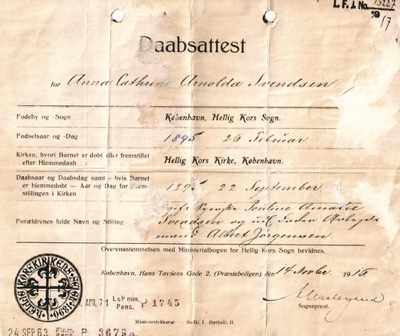 L. F. I. No. 15227
Daabsattest
for Anna Cathrine Arnolda Svendsen
Fødeby og -Sogn
København, Hellig Kors Sogn.
Fødselsaar og -Dag
1895 26 Februar
Kirken, hvori Barnet er døbt eller fremstillet
efter Hjemmedaab
Hellig Kors Kirke, København.
Daabsaar og Daabsdag samt - hvis Barnet
er hjemmedøbt - Aar og Dag for Frem-
stillingen i Kirken
1895 22 September
Forældrenes fulde Navn og Stilling
Pauline Amalie
Svendsen og Arbejds
mand Albert Jørgensen
Overensstemmelsen med Ministerialbogen for Hellig Kors Sogn bevidnes.
København, Hans Tavsens Gade 2, (Præsteboligen) den 14 1916
Sognepræst.
APR. 71 LSP min. Pens. 1745
24 SEP. 63 P 3679